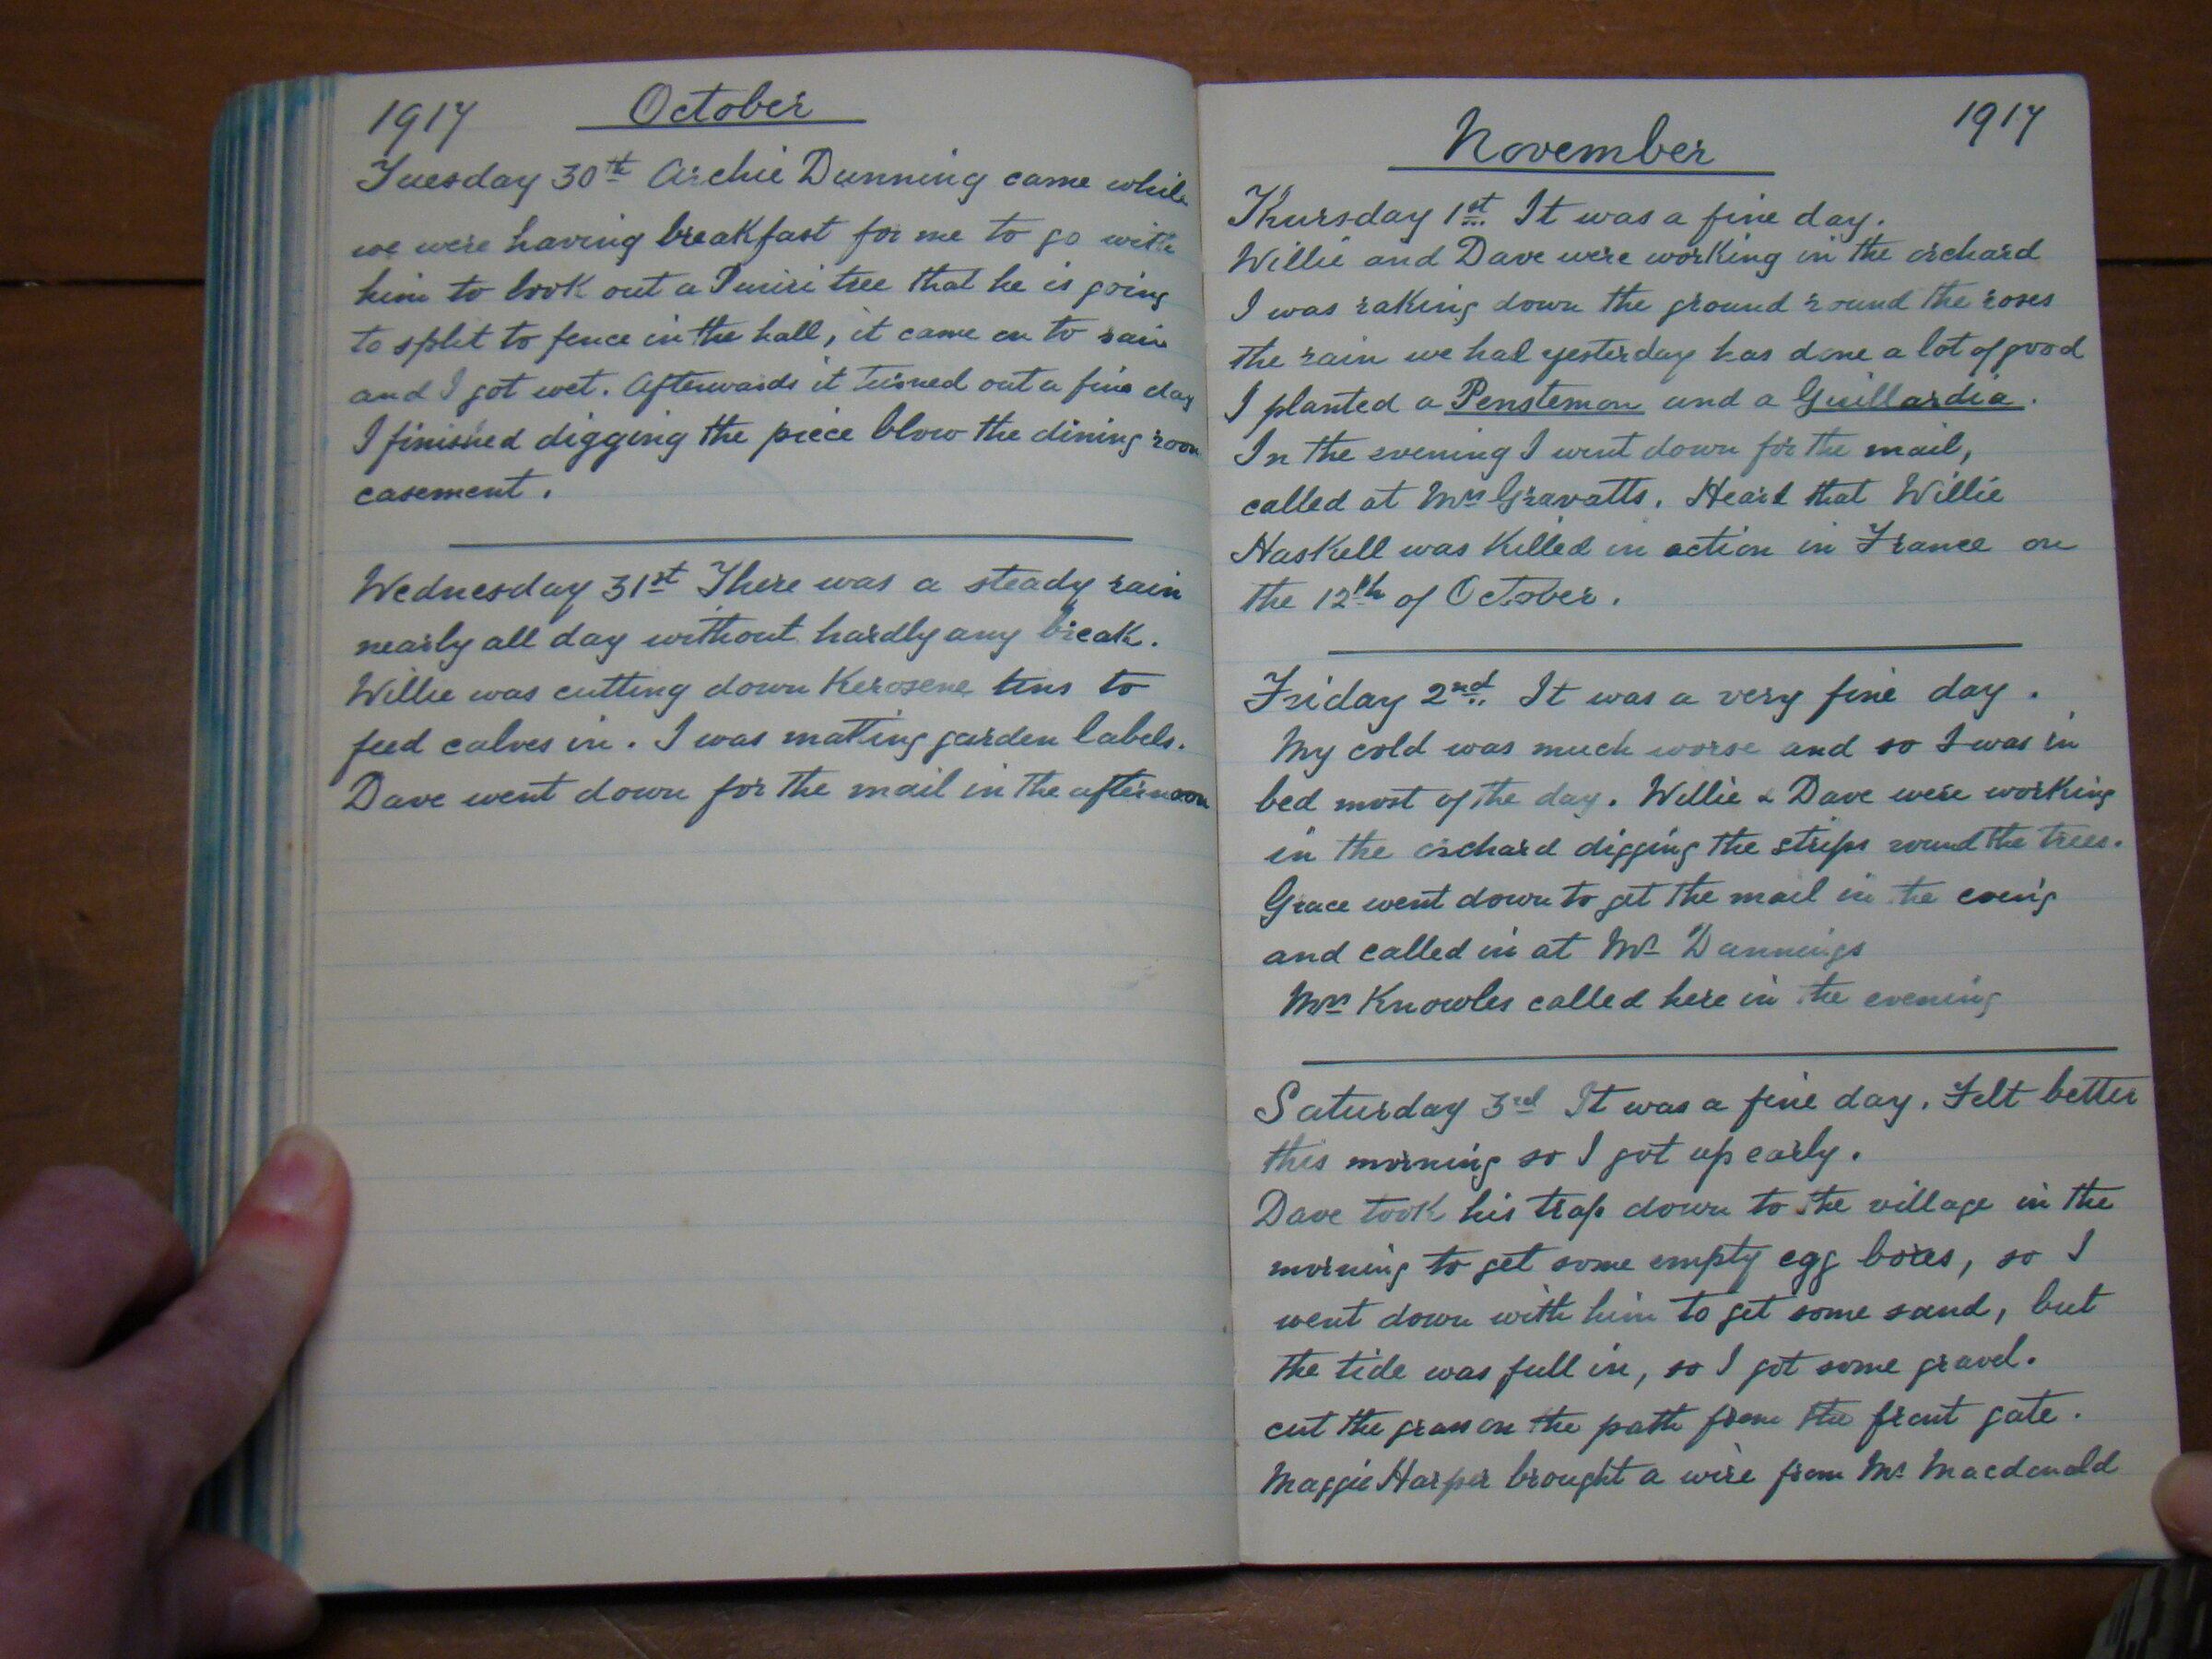 1917 October
Tuesday 30th Archie Dunning came while
we were having breakfast for me to go with
him to look out a Puriri tree that he is going
to split to fence in the hall, it came on to rain
and I got wet. Afterwards it turned out a fine day
I finished digging the piece blow the dining room
casement.
Wednesday 31st There was a steady rain
nearly all day without hardly any break.
Willie was cutting down Kerosene tins to
feed calves in. I was making garden labels.
Dave went down for the mail in the afternoon
November 1917
Thursday 1st It was a fine day.
Willie and Dave were working in the orchard
I was raking down the ground round the roses
the rain we had yesterday has done a lot of good
I planted a Penstemon and a Guillardia.
In the evening I went down for the mail,
called at Mrs Gravatts. Heard that Willie
Haskell was killed in action in France on
the 12th of October.
Friday 2nd. It was a very fine day.
My cold was much worse and so I was in
bed most of the day. Willie & Dave were working
in the orchard digging the strips round the trees.
Grace went down to get the mail in the eveing
and called in at Mr Dunnings
Mrs Knowles called here in the evening
Saturday 3rd It was a fine day. Felt better
this morning so I got up early.
Dave took his trap down to the village in the
morning to get some empty egg boxes, so I
went down with him to get some sand, but
the tide was full in, so I got some gravel.
cut the grass on the path from the front gate.
Maggie Harper brought a wire from Mr Macdonald